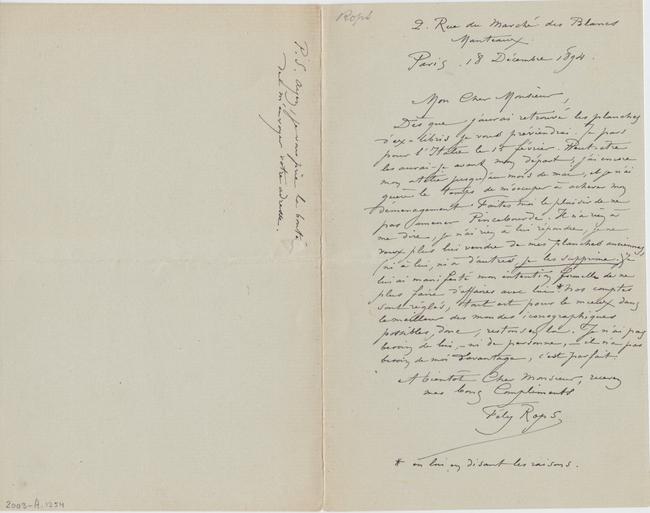 Rops
2. Rue du Marché des Blancs
Manteaux
Paris, 18 Décembre 1894.
Mon Cher Monsieur,
Dès que j'aurai retrouvé les planches
d'ex-libris je vous préviendrai. Je pars
pour l'Italie le 15 février. Peut-être
les aurai-je avant mon départ, j'ai encore
mon atelier jusqu'au mois de mai, et je n'ai
guère le temps de m'occuper à achever mon
déménagement. Faites moi le plaisir de ne
pas amener Pincebourde. Il n'a rien à
me dire, je n'ai rien à lui répondre, je ne
veux plus lui vendre de mes planches anciennes
(ni à lui, ni à d'autres, je les supprime). Je
lui ai manifesté mon intention formelle de ne
plus faire d'affaires avec lui* nos comptes
sont réglés, tout est pour le mieux dans
le meilleur des mondes iconographiques
possibles, donc, restons en là. Je n'ai pas
besoin de lui, – ni de personne, – il n'a pas
besoin de moi davantage, c'est parfait.
A bientôt Cher Monsieur, recevez
mes bons Compliments
Fely Rops
* en lui en disant les raisons.
P.S. ayez, je vous prie la bonté
de m'envoyer votre adresse.
2003-A.1254